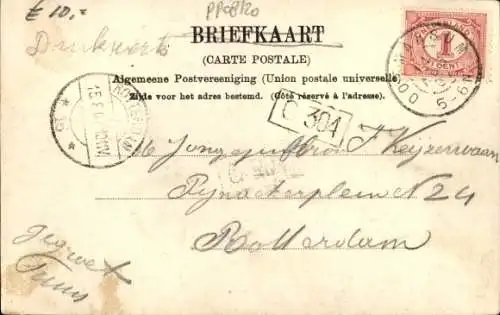 £ 10.=
PP08120
Drukwerk
BRIEFKAART
(CARTE POSTALE)
Algemeene Postvereeniging (Union postale universelle)
Zijde voor het adres bestemd. (Côté réservé à l'adresse).
C 304
1
CENT
5-6N
ROTTERDAM
Mejongejuffrouw J Keijzerwaan
Pijnackerplein No 24
Rotterdam
gegroet